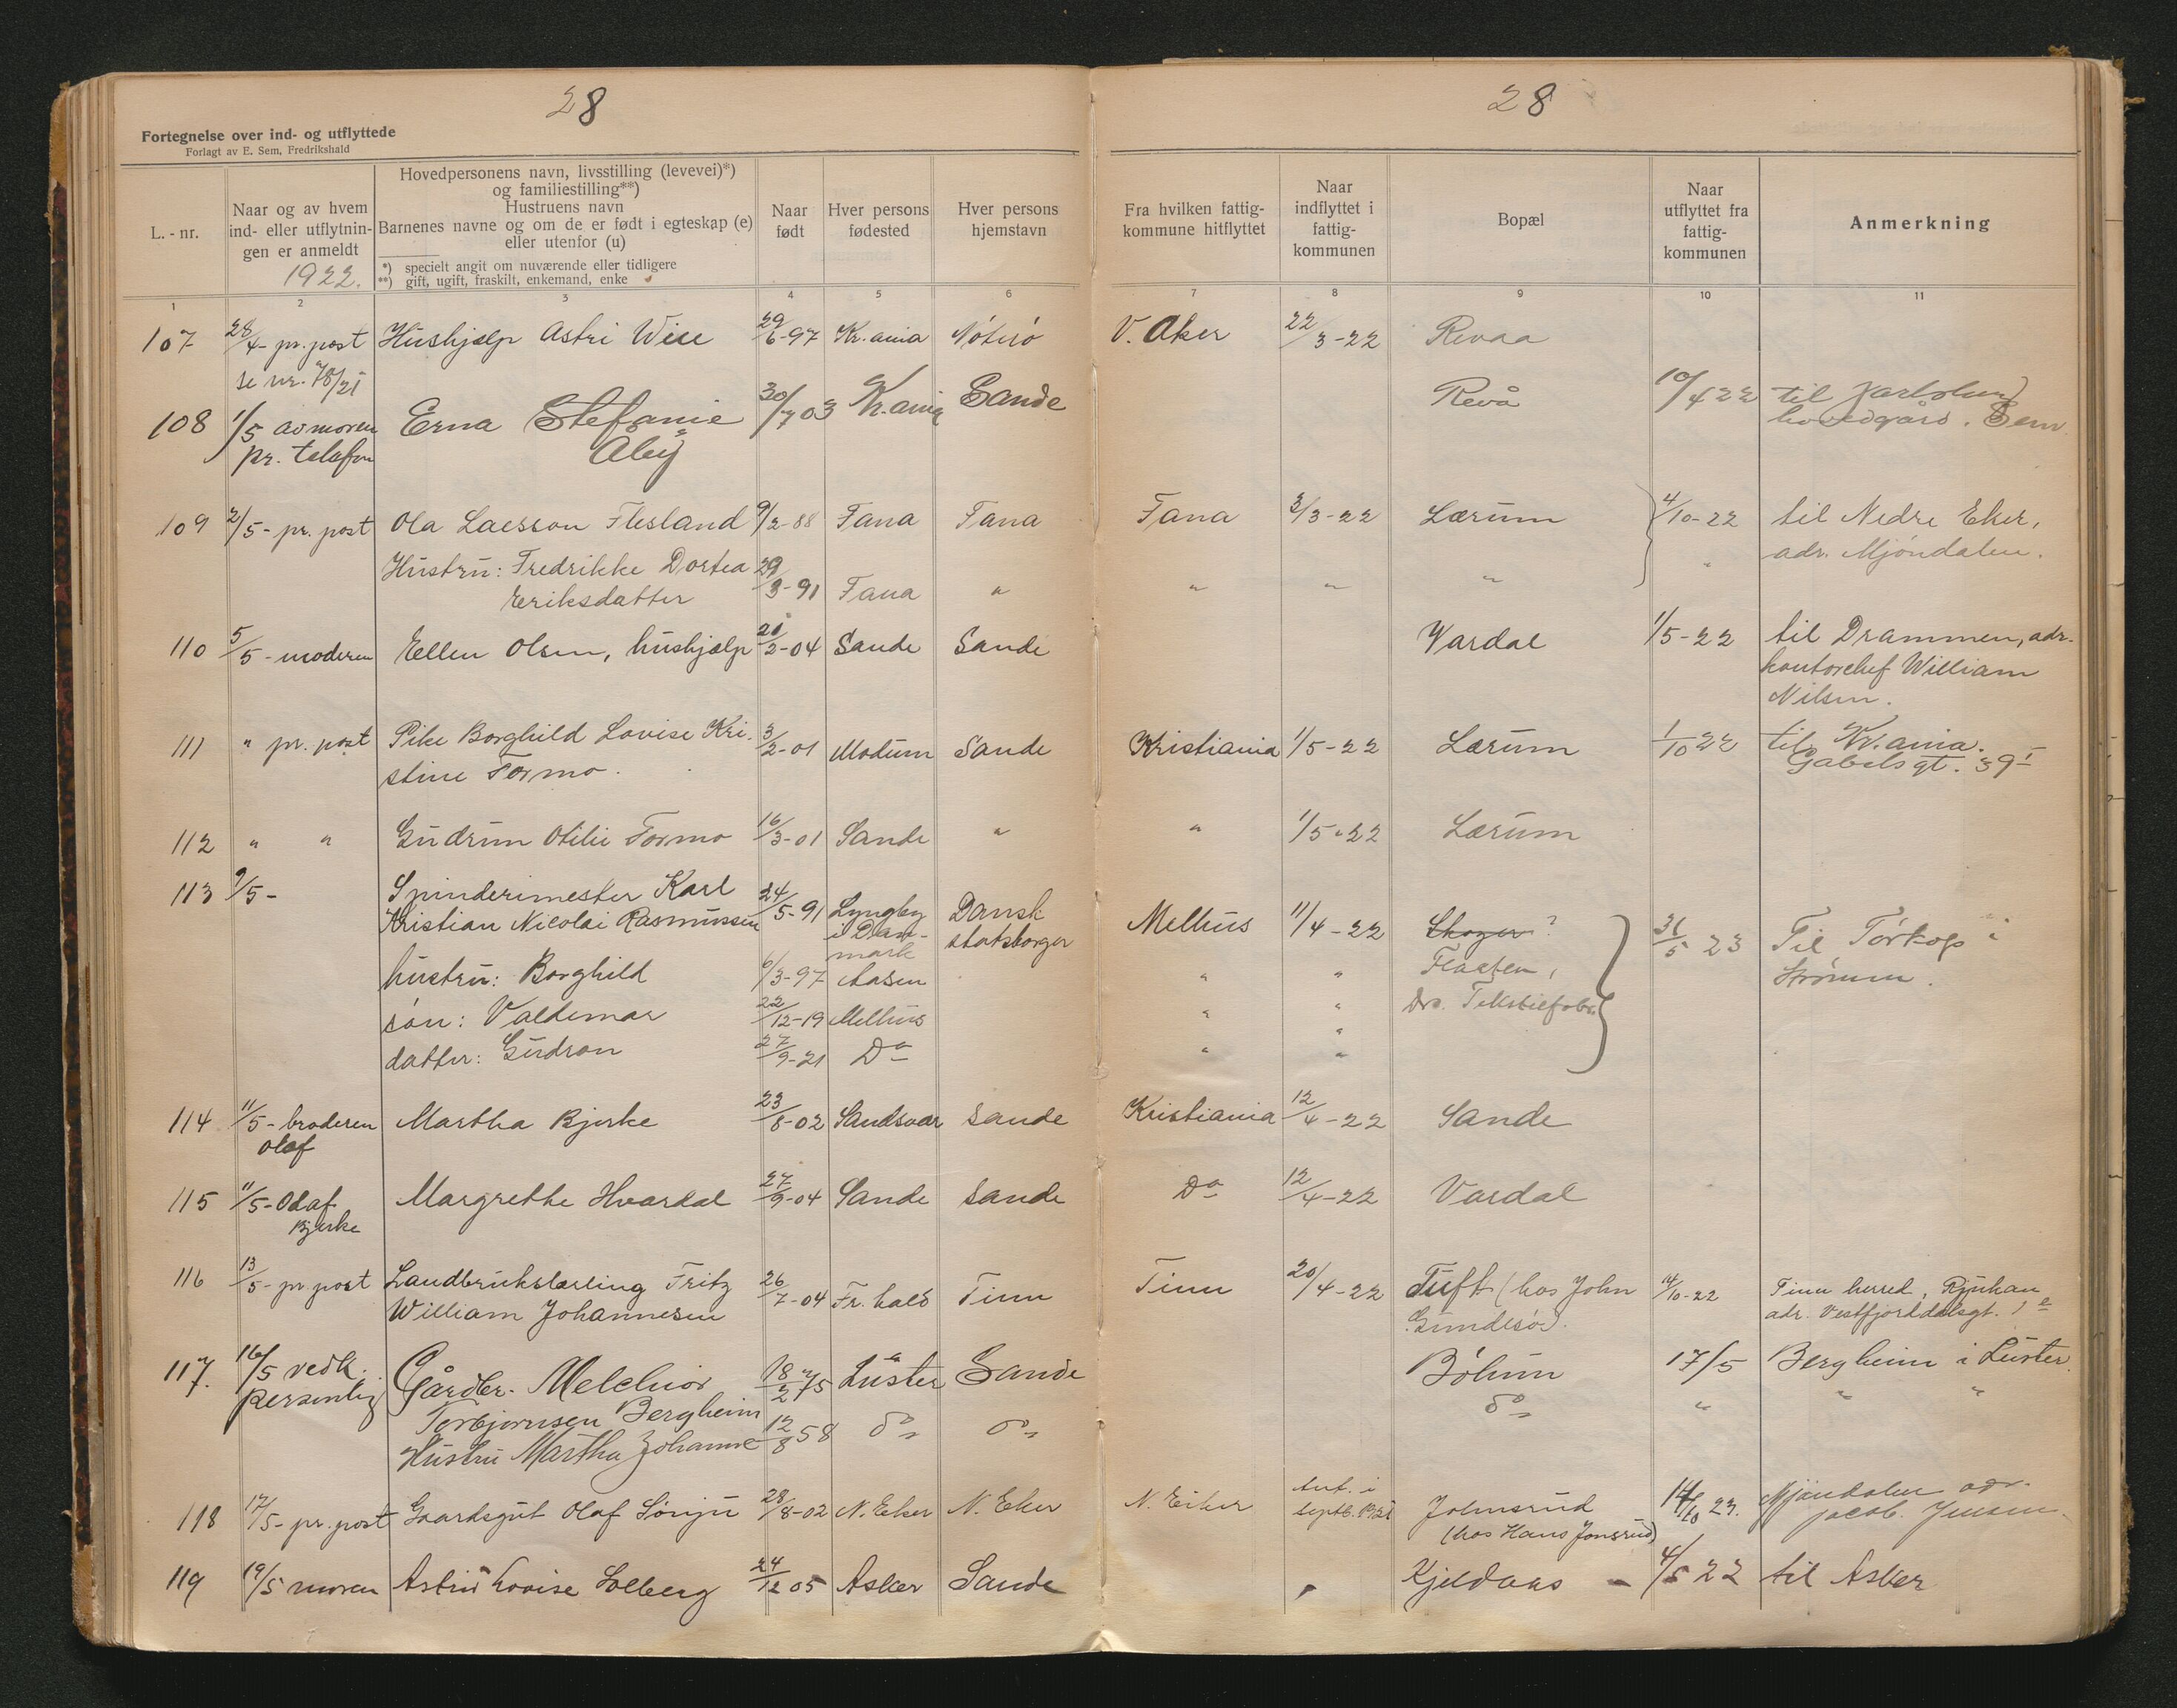 28
28
Fortegnelse over ind- og utflyttede
Forlagt av E. Sem, Fredrikshald
L. - nr.
Naar og av hvem
ind- eller utflytnin-
gen er anmeldt
1922.
Hovedpersonens navn, livsstilling (levevei)*)
og familiestilling**)
Hustruens navn
Barnenes navne og om de er født i egteskap (e)
eller utenfor (u)
*) specielt angit om nuværende eller tidligere
**) gift, ugift, fraskilt, enkemand, enke
Naar
født
Hver persons
fødested
Hver persons
hjemstavn
Fra hvilken fattig-
kommune hitflyttet
Naar
indflyttet i
fattig-
kommunen
Bopæl
Naar
utflyttet fra
fattig-
kommunen
Anmerkning
1 2 3 4 5 6 7 8 9 10 11
107 28/4- pr. post Hushjælp Astri Wiee 29/6-97 Kr.ania Nøterø V. Aker 22/3-22 Revaa
se nr. 78/21
108 1/5 av moren Erna Stefanie 30/7 03 Kr.ania Sande Revå 10/4 22 til Jarlsberg
pr. telefon Aley hovedgård. Sem.
109 2/5- pr. post Ola Laesson Flesland 9/2-88 Fana Fana Fana 3/3-22 Lærum 4/10-22 til Nedre Eker,
adr. Mjøndalen.
Hustru: Fredrikke Dortea 29/3-91 Fana " " " " "
Eriksdatter
110 5/5- moderen Ellen Olsen, hushjælp 21/2-04 Sande Sande Vardal 1/5-22 til Drammen, adr.
kontorchef William
Nilsen.
111 " pr. post Pike Borghild Lovise Kri- 3/2-01 Modum Sande Kristiania 1/5-22 Lærum 1/10 22 til Kr.ania.
stine Formo. Gabels gt. 39 I
112 " " Gudrun Otilie Formo 16/3-01 Sande " " 1/5-22 Lærum
113 9/5- Spinderimester Karl
Kristian Nicolai Rasmussen 24/5-91 Lyngby Dansk Mellus 11/4-22 Skoger? 31/5 23 Til Tørkop i
i Dan- statsborger Strømm.
mark
hustru: Borghild 6/3-97 Aasen " " Flaaten,
søn: Valdemar 22/12-19 Melhus " " Drs. Tekstilfabr.
"
datter: Gudron 27/9-21 Do " "
114 11/5- broderen Martha Bjerke 23/8-02 Sandsvær Sande Kristiania 12/4-22 Sande
Olaf
115 11/5- Olaf Margrethe Hvardal 27/9-04 Sande Sande Do 12/4-22 Vardal
Bjerke
116 13/5- pr post Landbrukslærling Fritz 26/7-04 Fr. hald Tinn Tinn 20/4-22 Tuft (hos John 14/10-22 Tinn herred, Rjukan
William Johannesen Gundesø). adr. Vestfjorddalsgt. 1 e
117. 16/5 vedk. Gårdbr. Melchior 18/2 75 Luster Sande Bøhun 17/5 Bergheim i Luster.
personlig Torbjørnsen Bergheim do " " "
Hustru Martha Johanne 12/8 58 do do
118 17/5- pr. post Gaardsgut Olaf Lønju 28/8-02 N. Eker N. Eker N. Eiker Ant. i Johnsrud 14/10 23. Mjøndalen adr.
septb. 1921 (hos Hans Jonsrud) Jacob. Jensen.
119 19/5 moren Astrid Lovise Solberg 24/12 05 Asker Sande " Kjeldaas - 4/5 22 til Asker